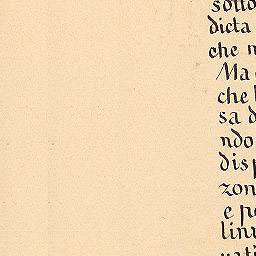 sotto
dicta
che
Ma
che
sa
ndo
disp
zon
e po
linu